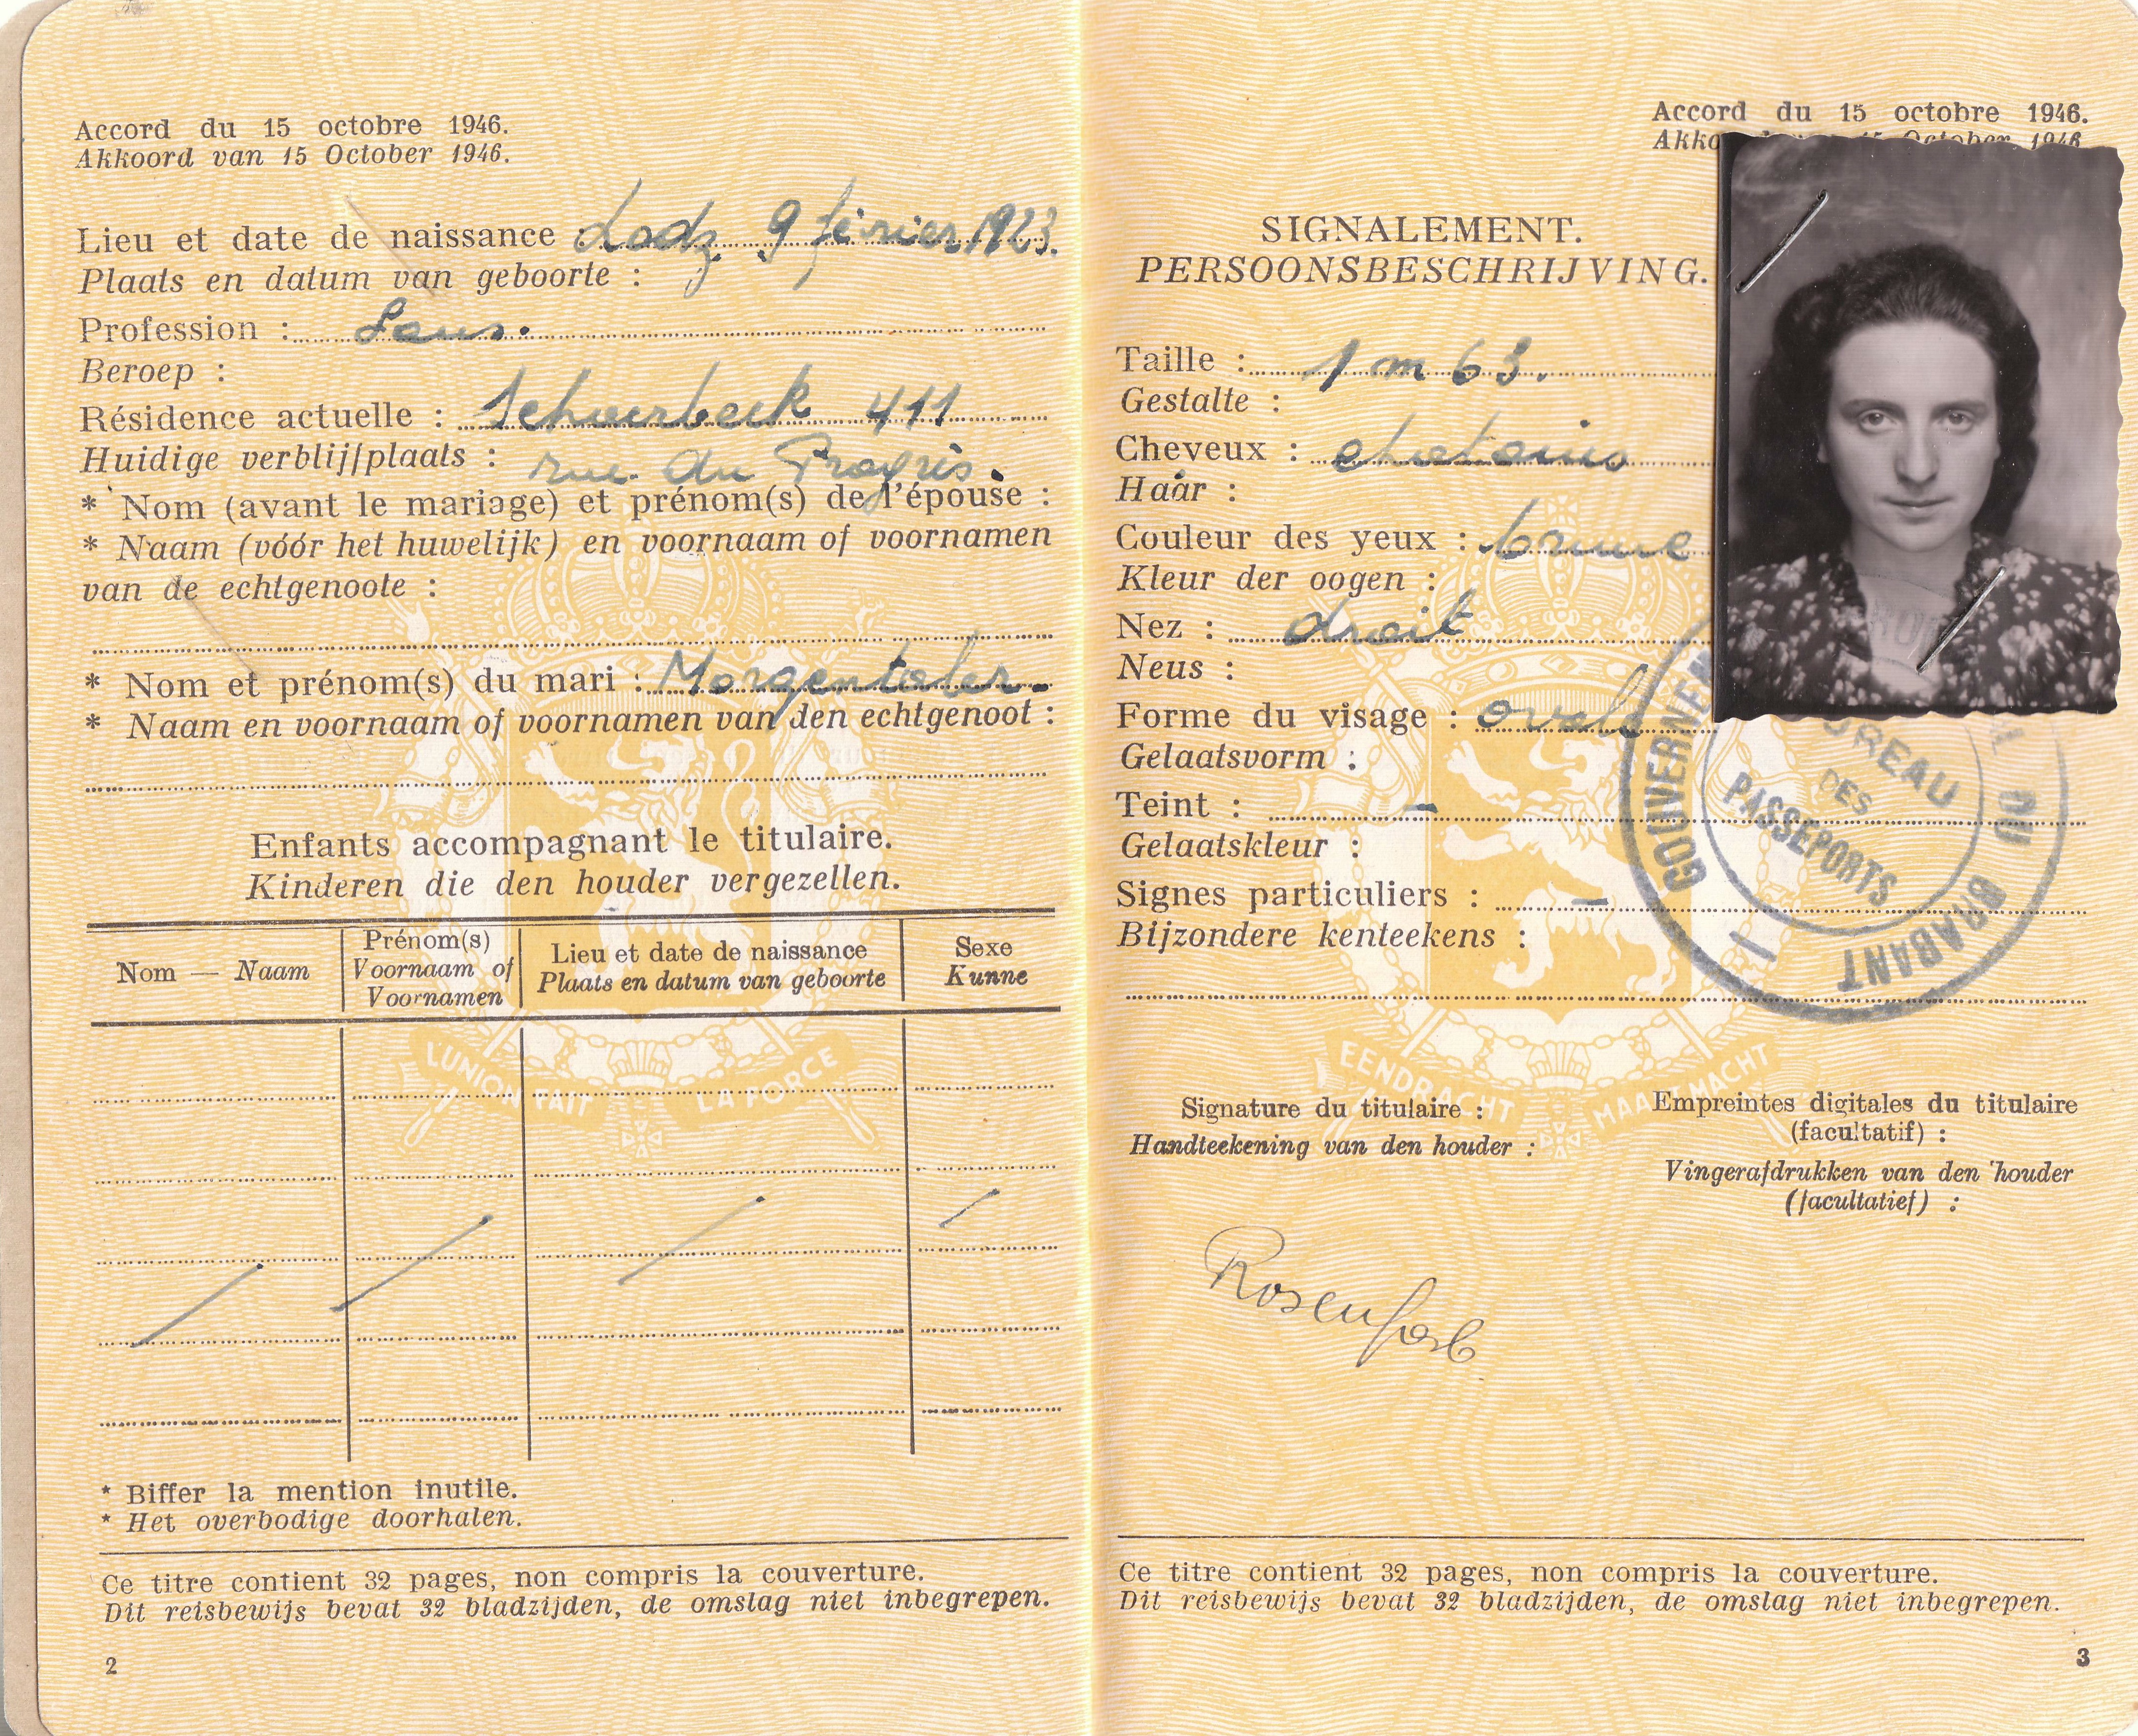 Accord du 15 octobre 1946.
Akkoord van 15 October 1946.
Lieu et date de naissance : Lodz 9 février 1923.
Plaats en datum van geboorte :
Profession : Sans.
Beroep :
Résidence actuelle : Schaerbeek 411
Huidige verblijfplaats : rue du Progrès.
* Nom (avant le mariage) et prénom(s) de l'épouse :
* Naam (vóór het huwelijk) en voornaam of voornamen
van de echtgenoote :
* Nom et prénom(s) du mari : Morgentaler.
* Naam en voornaam of voornamen van den echtgenoot :
Enfants accompagnant le titulaire.
Kinderen die den houder vergezellen.
Nom — Naam
Prénom(s)
Voornaam of
Voornamen
Lieu et date de naissance
Plaats en datum van geboorte
Sexe
Kunne
L'UNION FAIT LA FORCE
* Biffer la mention inutile.
* Het overbodige doorhalen.
Ce titre contient 32 pages, non compris la couverture.
Dit reisbewijs bevat 32 bladzijden, de omslag niet inbegrepen.
2
Accord du 15 octobre 1946.
October 1946
SIGNALEMENT.
PERSOONSBESCHRIJVING.
Taille : 1 m 63.
Gestalte :
Cheveux : chatains
Haar :
Couleur des yeux : brune
Kleur der oogen :
Nez : droit
Neus :
Forme du visage : ovale
Gelaatsvorm :
Teint : —
Gelaatskleur :
Signes particuliers : —
Bijzondere kenteekens :
DU BRABANT
BUREAU
DES
PASSEPORTS
EENDRACHT MAAKT MACHT
Signature du titulaire :
Handteekening van den houder :
Empreintes digitales du titulaire
(facultatif) :
Vingerafdrukken van den houder
(facultatief) :
Rosenfarb
Ce titre contient 32 pages, non compris la couverture.
Dit reisbewijs bevat 32 bladzijden, de omslag niet inbegrepen.
3